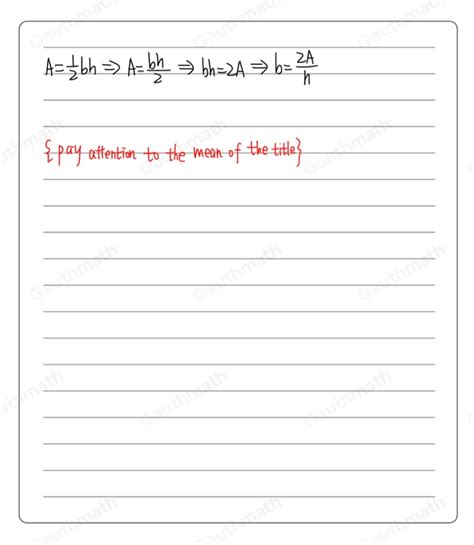 A=½bh⇒A=bh/2⇒bh=2A⇒b=2A/h
{pay attention to the mean of the title}
Gauthmath